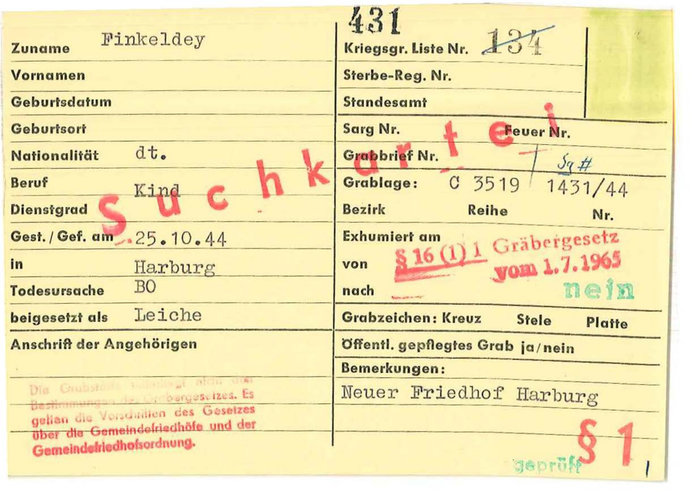 Zuname Finkeldey
Vornamen
Geburtsdatum
Geburtsort
Nationalität dt.
Beruf Kind
Dienstgrad
Gest./Gef. am 25.10.44
in Harburg
Todesursache BO
beigesetzt als Leiche
Anschrift der Angehörigen
Die Grabstätte unterliegt nicht den
Bestimmungen des Gräbergesetzes. Es
gelten die Vorschriften des Gesetzes
über die Gemeindefriedhöfe und der
Gemeindefriedhofsordnung.
Suchkartei
431
Kriegsgr. Liste Nr. 134
Sterbe-Reg. Nr.
Standesamt
Sarg Nr. Feuer Nr.
Grabbrief Nr.
Grablage: C 3519 1431/44
Bezirk Reihe Nr.
Exhumiert am
von
nach
§ 16 (1) 1 Gräbergesetz
vom 1.7.1965
nein
Grabzeichen: Kreuz Stele Platte
Öffentl. gepflegtes Grab ja/nein
Bemerkungen:
Neuer Friedhof Harburg
§ 1
geprüft